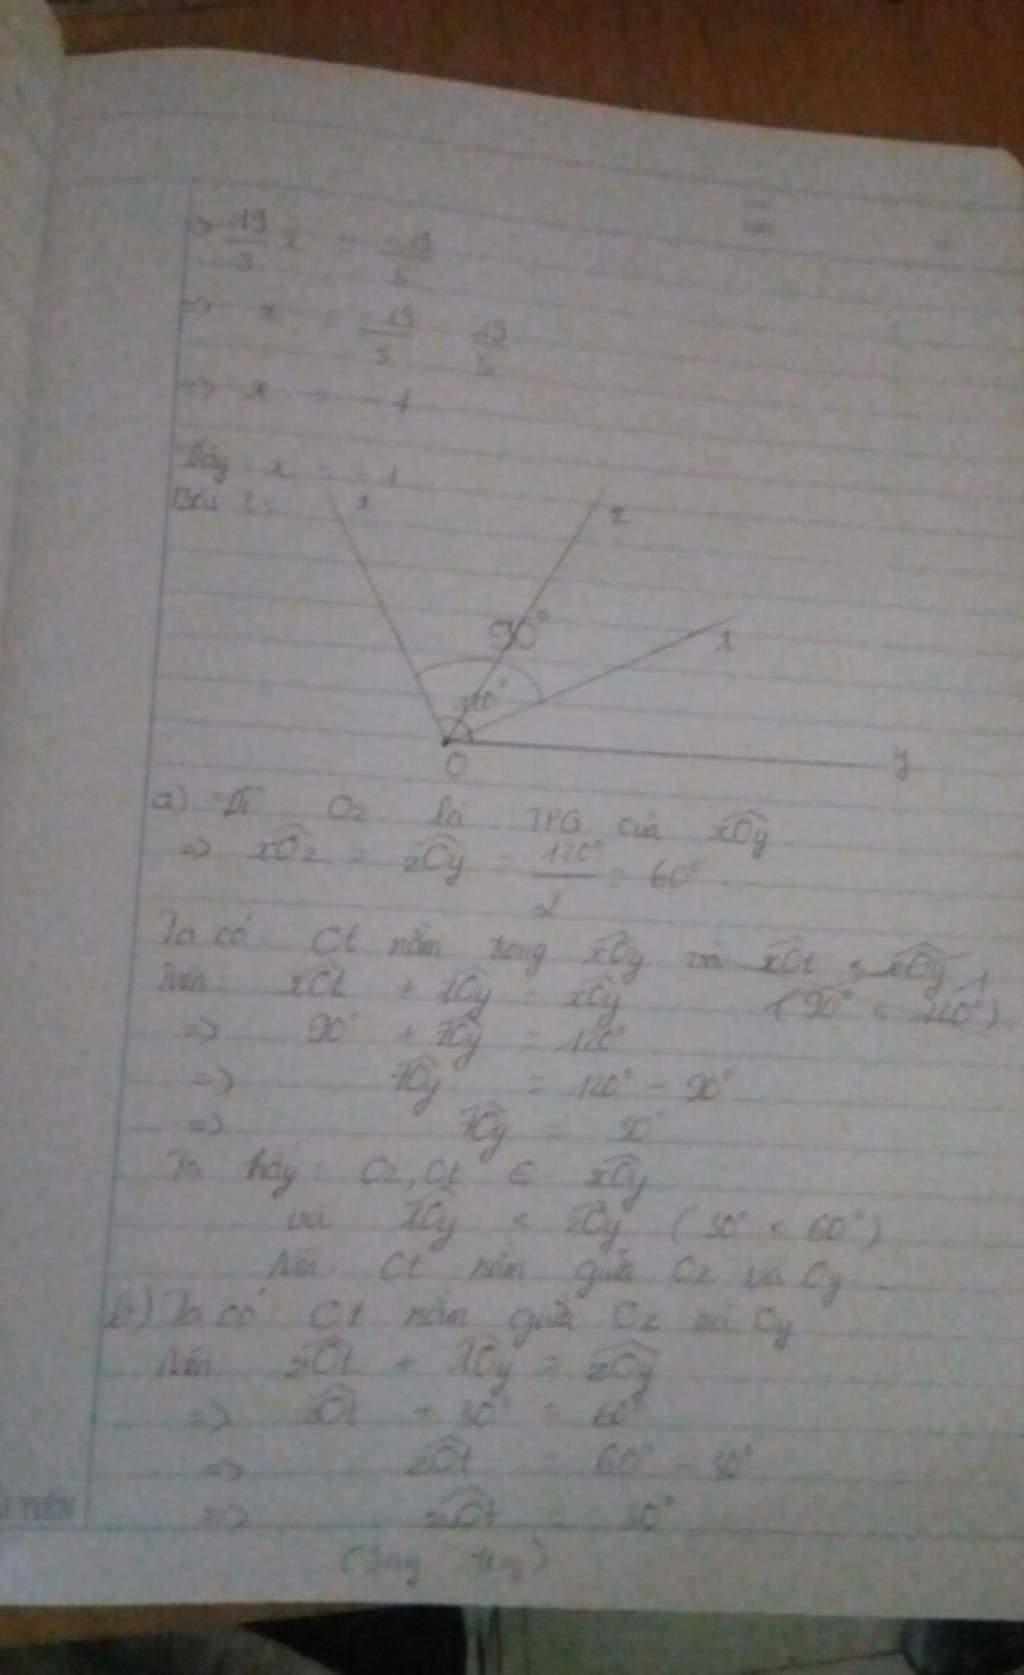 => 19/5 x = -19/5
=> x = -19/5 : 19/5
=> x = -1
Vậy x = -1
Bài 2:
x z
90°
t
120°
O y
a) Vì Oz là TPG của xOy
=> xOz = zOy = 120°/2 = 60°
Ta có Ot nằm trong xOy và xOt < xOy
(90° < 120°)
Nên: xOt + tOy = xOy
=> 90° + tOy = 120°
=> tOy = 120° - 90°
=> tOy = 30°
Ta thấy: Oz, Ot ∈ xOy
và tOy < zOy (30° < 60°)
Nên: Ot nằm giữa Oz và Oy
b) Ta có Ot nằm giữa Oz và Oy
Nên: zOt + tOy = zOy
=> zOt + 30° = 60°
=> zOt = 60° - 30°
=> zOt = 30°